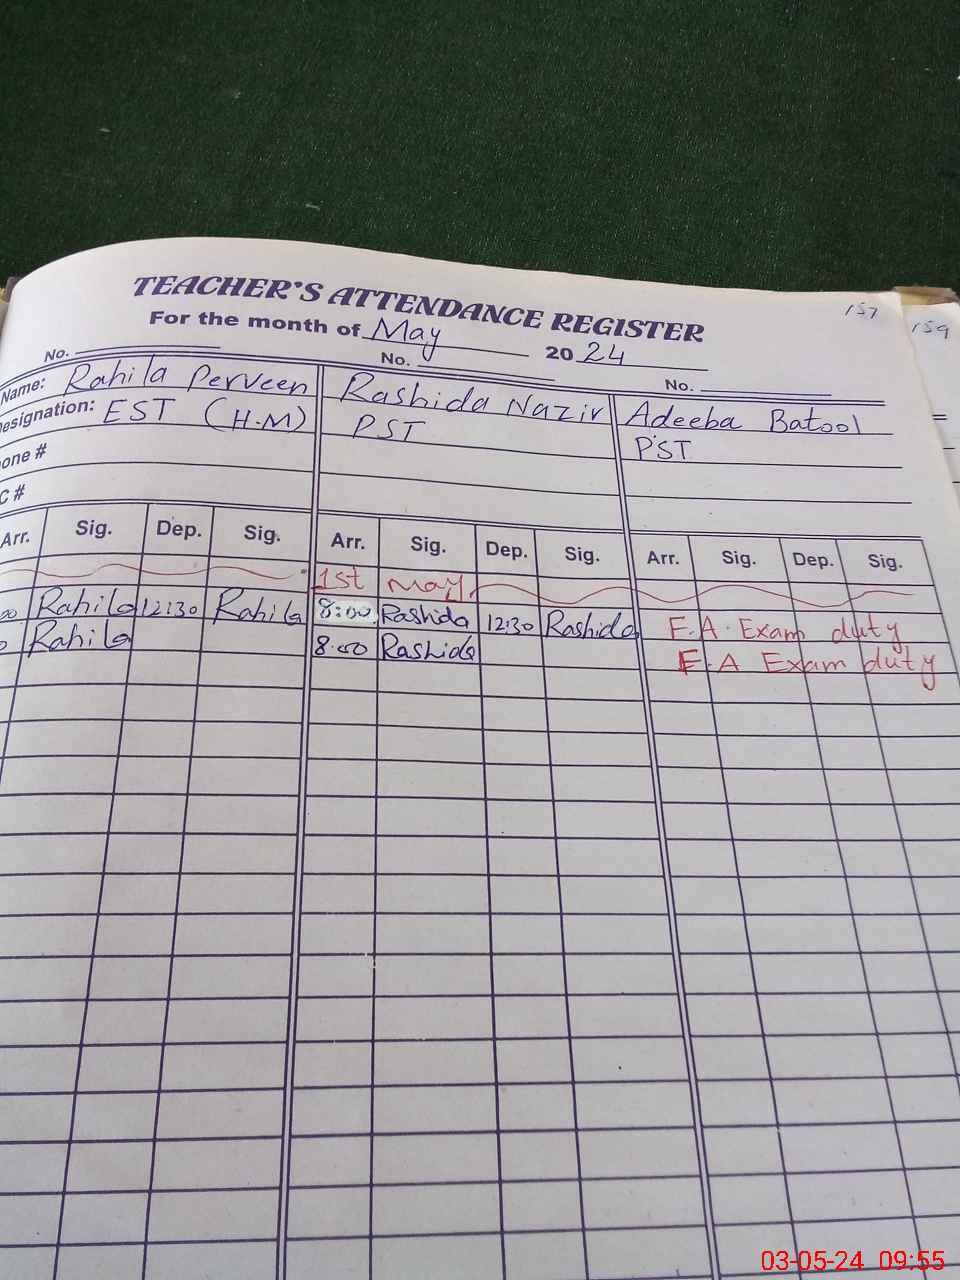 TEACHER'S ATTENDANCE REGISTER
157
159
For the month of May 2024
No. No. No.
Name: Rahila Perveen Rashida Nazir Adeeba Batool
esignation: EST (H.M) PST PST
one #
C #
Arr. Sig. Dep. Sig. Arr. Sig. Dep. Sig. Arr. Sig. Dep. Sig.
1st May
00 Rahila 12:30 Rahila 8:00 Rashida 12:30 Rashida F.A. Exam duty
0 Rahila 8:00 Rashida F.A Exam duty
03-05-24 09:55